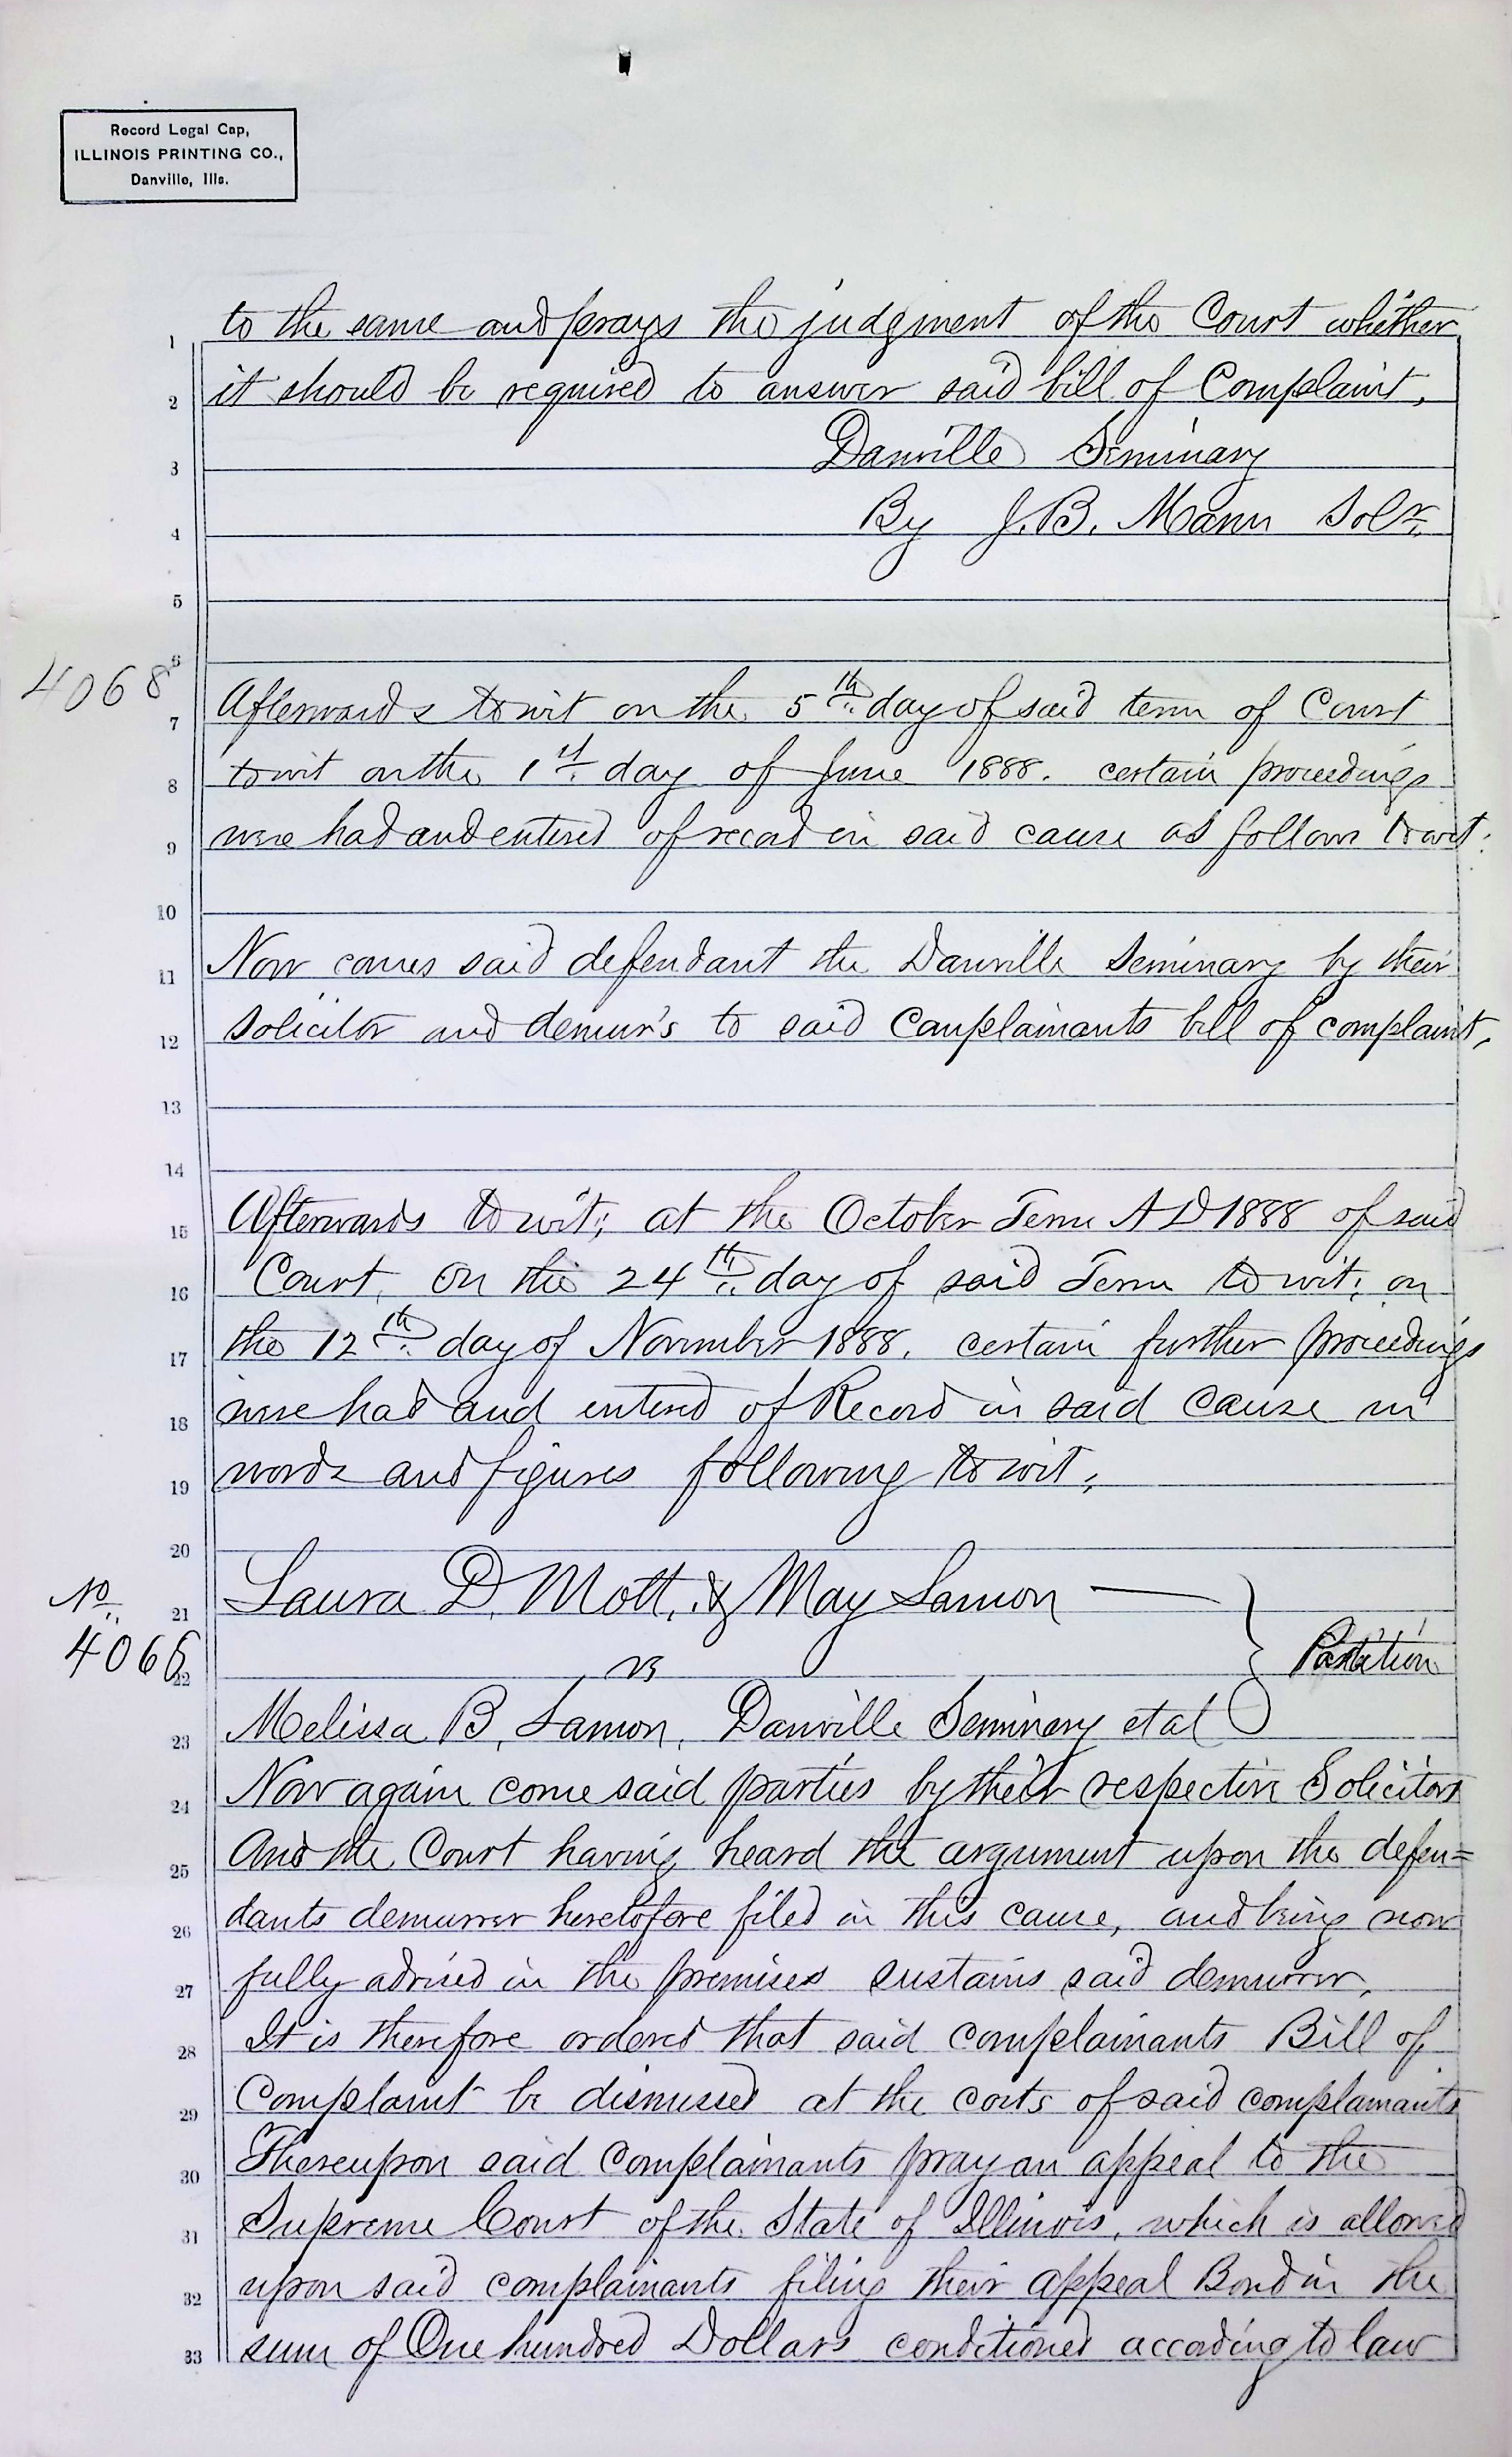 Record Legal Cap,
ILLINOIS PRINTING CO.,
Danville, Ills.
1 to the same and prays the judgment of the Court whether
2 it should be required to answer said bill of Complaint,
3 Danville Seminary
4 By J. B. Mann Solr.
5
6
4068
7 Afterwards towit on the 5th day of said term of Court
8 towit on the 1st day of June 1888. certain proceedings
9 were had and entered of record in said cause as follows towit:
10
11 Now comes said defendant the Danville Seminary by their
12 solicitor and demur's to said Complainants bill of complaint,
13
14
15 Afterwards towit; at the October Term A D 1888 of said
16 Court, on the 24th day of said Term towit; on
17 the 12th day of November 1888. certain further proceedings
18 were had and entered of Record in said cause in
19 words and figures following towit;
20
No.
21 Laura D. Mott, & May Lamon
4068
22 vs Partition
23 Melissa B, Lamon, Danville Seminary et al
24 Now again come said parties by their respective Solicitors
25 And the Court having heard the argument upon the defen=
26 dants demurrer heretofore filed in this cause, and being now
27 fully advised in the premises sustains said demurrer,
28 It is therefore ordered that said complainants Bill of
29 Complaint be dismissed at the costs of said complainants
30 Thereupon said Complainants pray an appeal to the
31 Supreme Court of the State of Illinois, which is allowed
32 upon said complainants filing their appeal Bond in the
33 sum of One hundred Dollars conditioned according to law